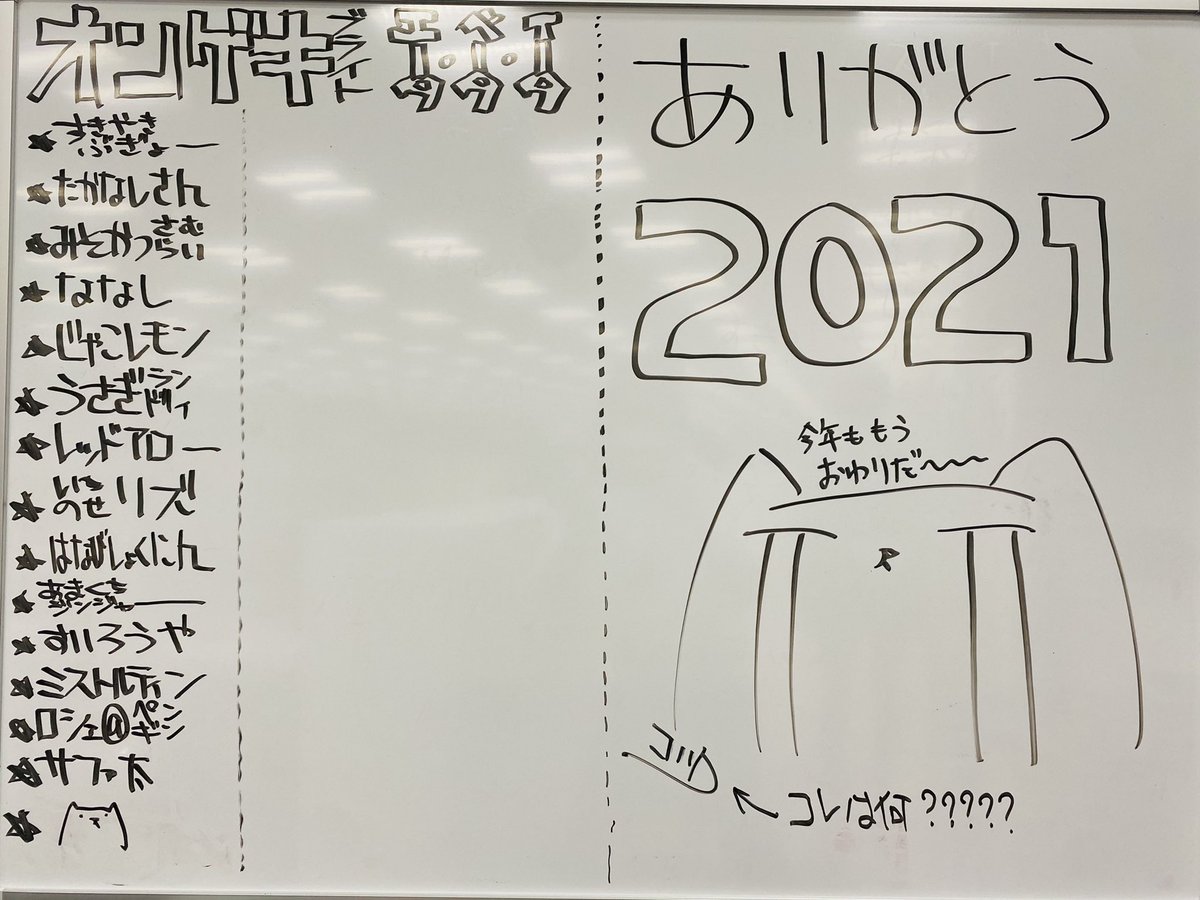 オンゲキ ブライト
ありがとう
2021
★すきやきぶぎょー
★たかなしさん
★みそかつさむらい
★ななし
★じゃこレモン
★うさぎランドリィ
★レッドアロー
★いちのせリズ
★はなびしょくにん
★あまくちジンジャー
★すいろうや
★ミストルティン
★ロシェ@ペンギン
★サファ太
★
今年ももう
おわりだ〜〜〜
コレは何?????